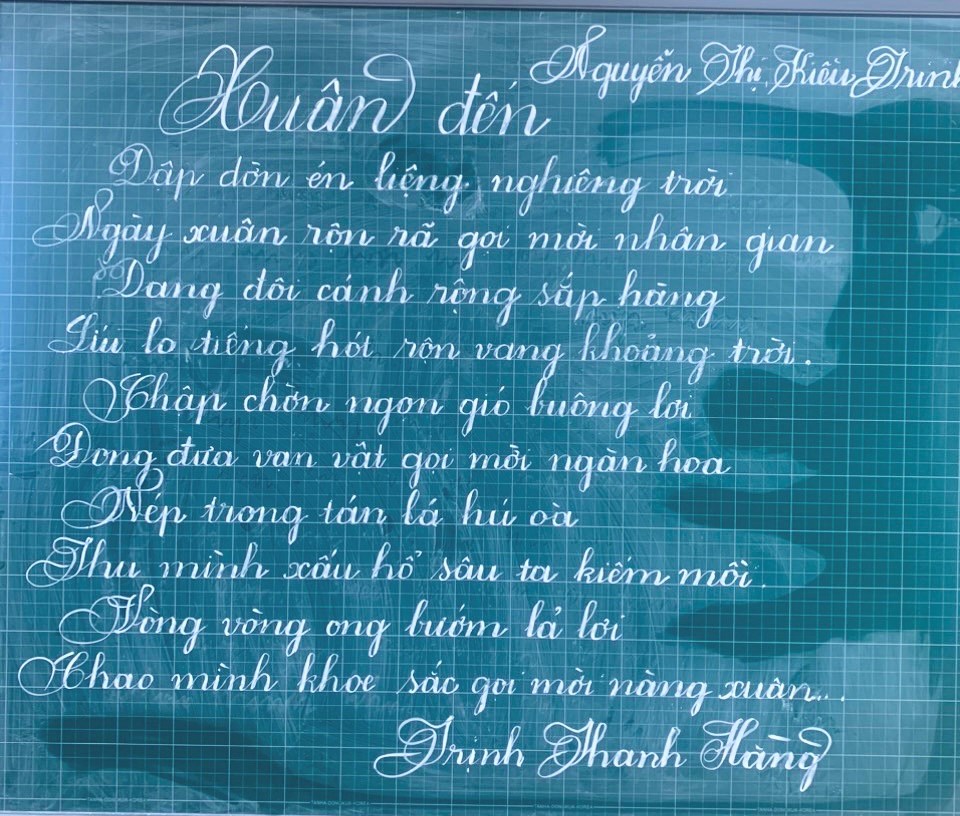 Nguyễn Thị Kiều Trinh
Xuân đến
Dập dờn én liệng nghiêng trời
Ngày xuân rộn rã gọi mời nhân gian
Dang đôi cánh rộng sắp hàng
Líu lo tiếng hót rộn vang khoảng trời.
Chập chờn ngọn gió buông lơi
Đong đưa vạn vật gọi mời ngàn hoa
Nép trong tán lá hú oà
Thu mình xấu hổ sâu ta kiếm mồi.
Vòng vòng ong bướm lả lơi
Chao mình khoe sắc gọi mời nàng xuân...
Trịnh Thanh Hằng